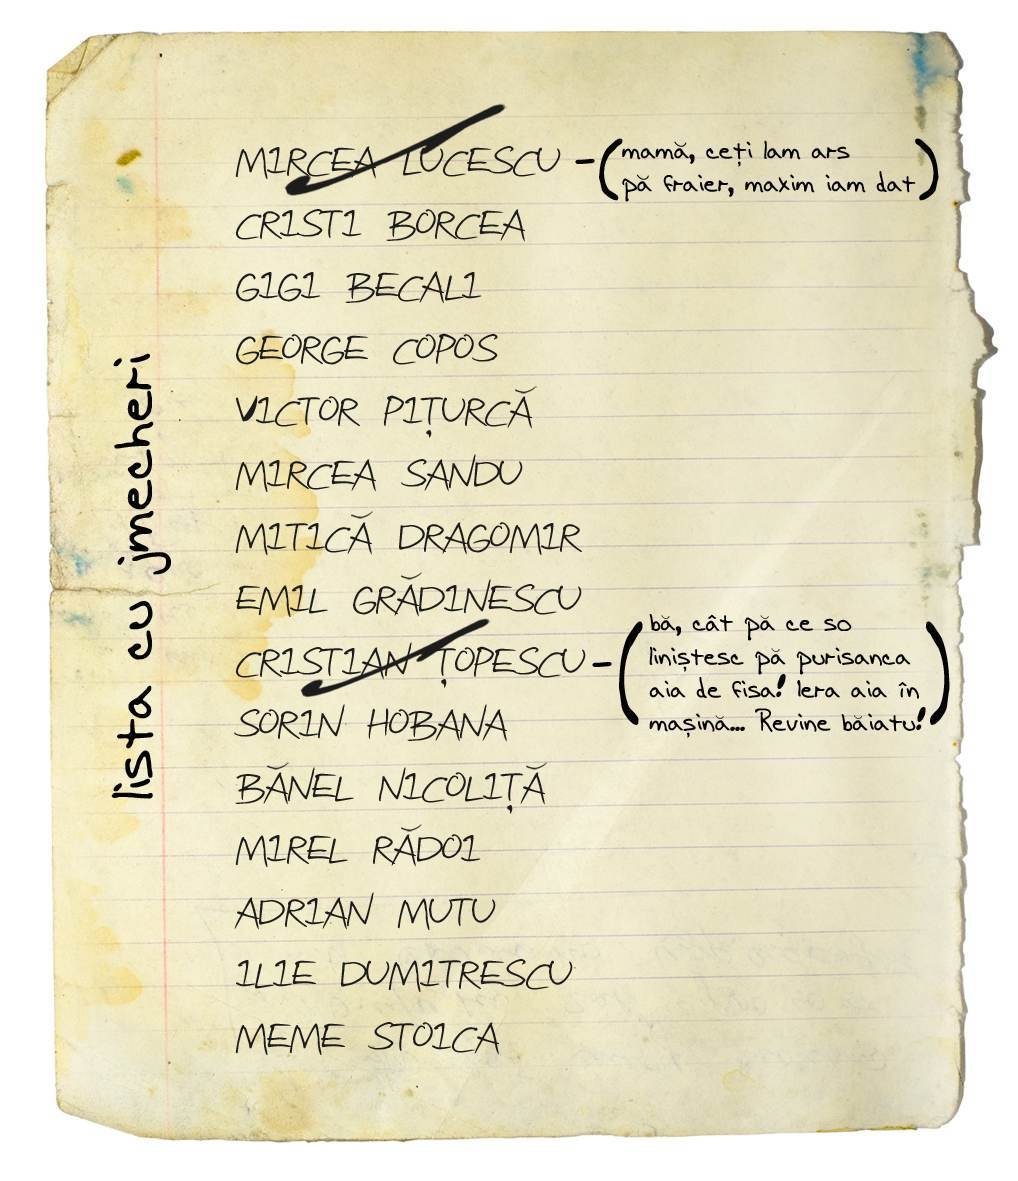 lista cu jmecheri
MIRCEA LUCESCU - (mamă, ceți lam ars
pă fraier, maxim iam dat)
CRISTI BORCEA
GIGI BECALI
GEORGE COPOS
VICTOR PIȚURCĂ
MIRCEA SANDU
MITICĂ DRAGOMIR
EMIL GRĂDINESCU
CRISTIAN ȚOPESCU - (bă, cât pă ce so
liniștesc pă purisanca
aia de fisa! Iera aia în
mașină... Revine băiatu!)
SORIN HOBANA
BĂNEL NICOLIȚĂ
MIREL RĂDOI
ADRIAN MUTU
ILIE DUMITRESCU
MEME STOICA